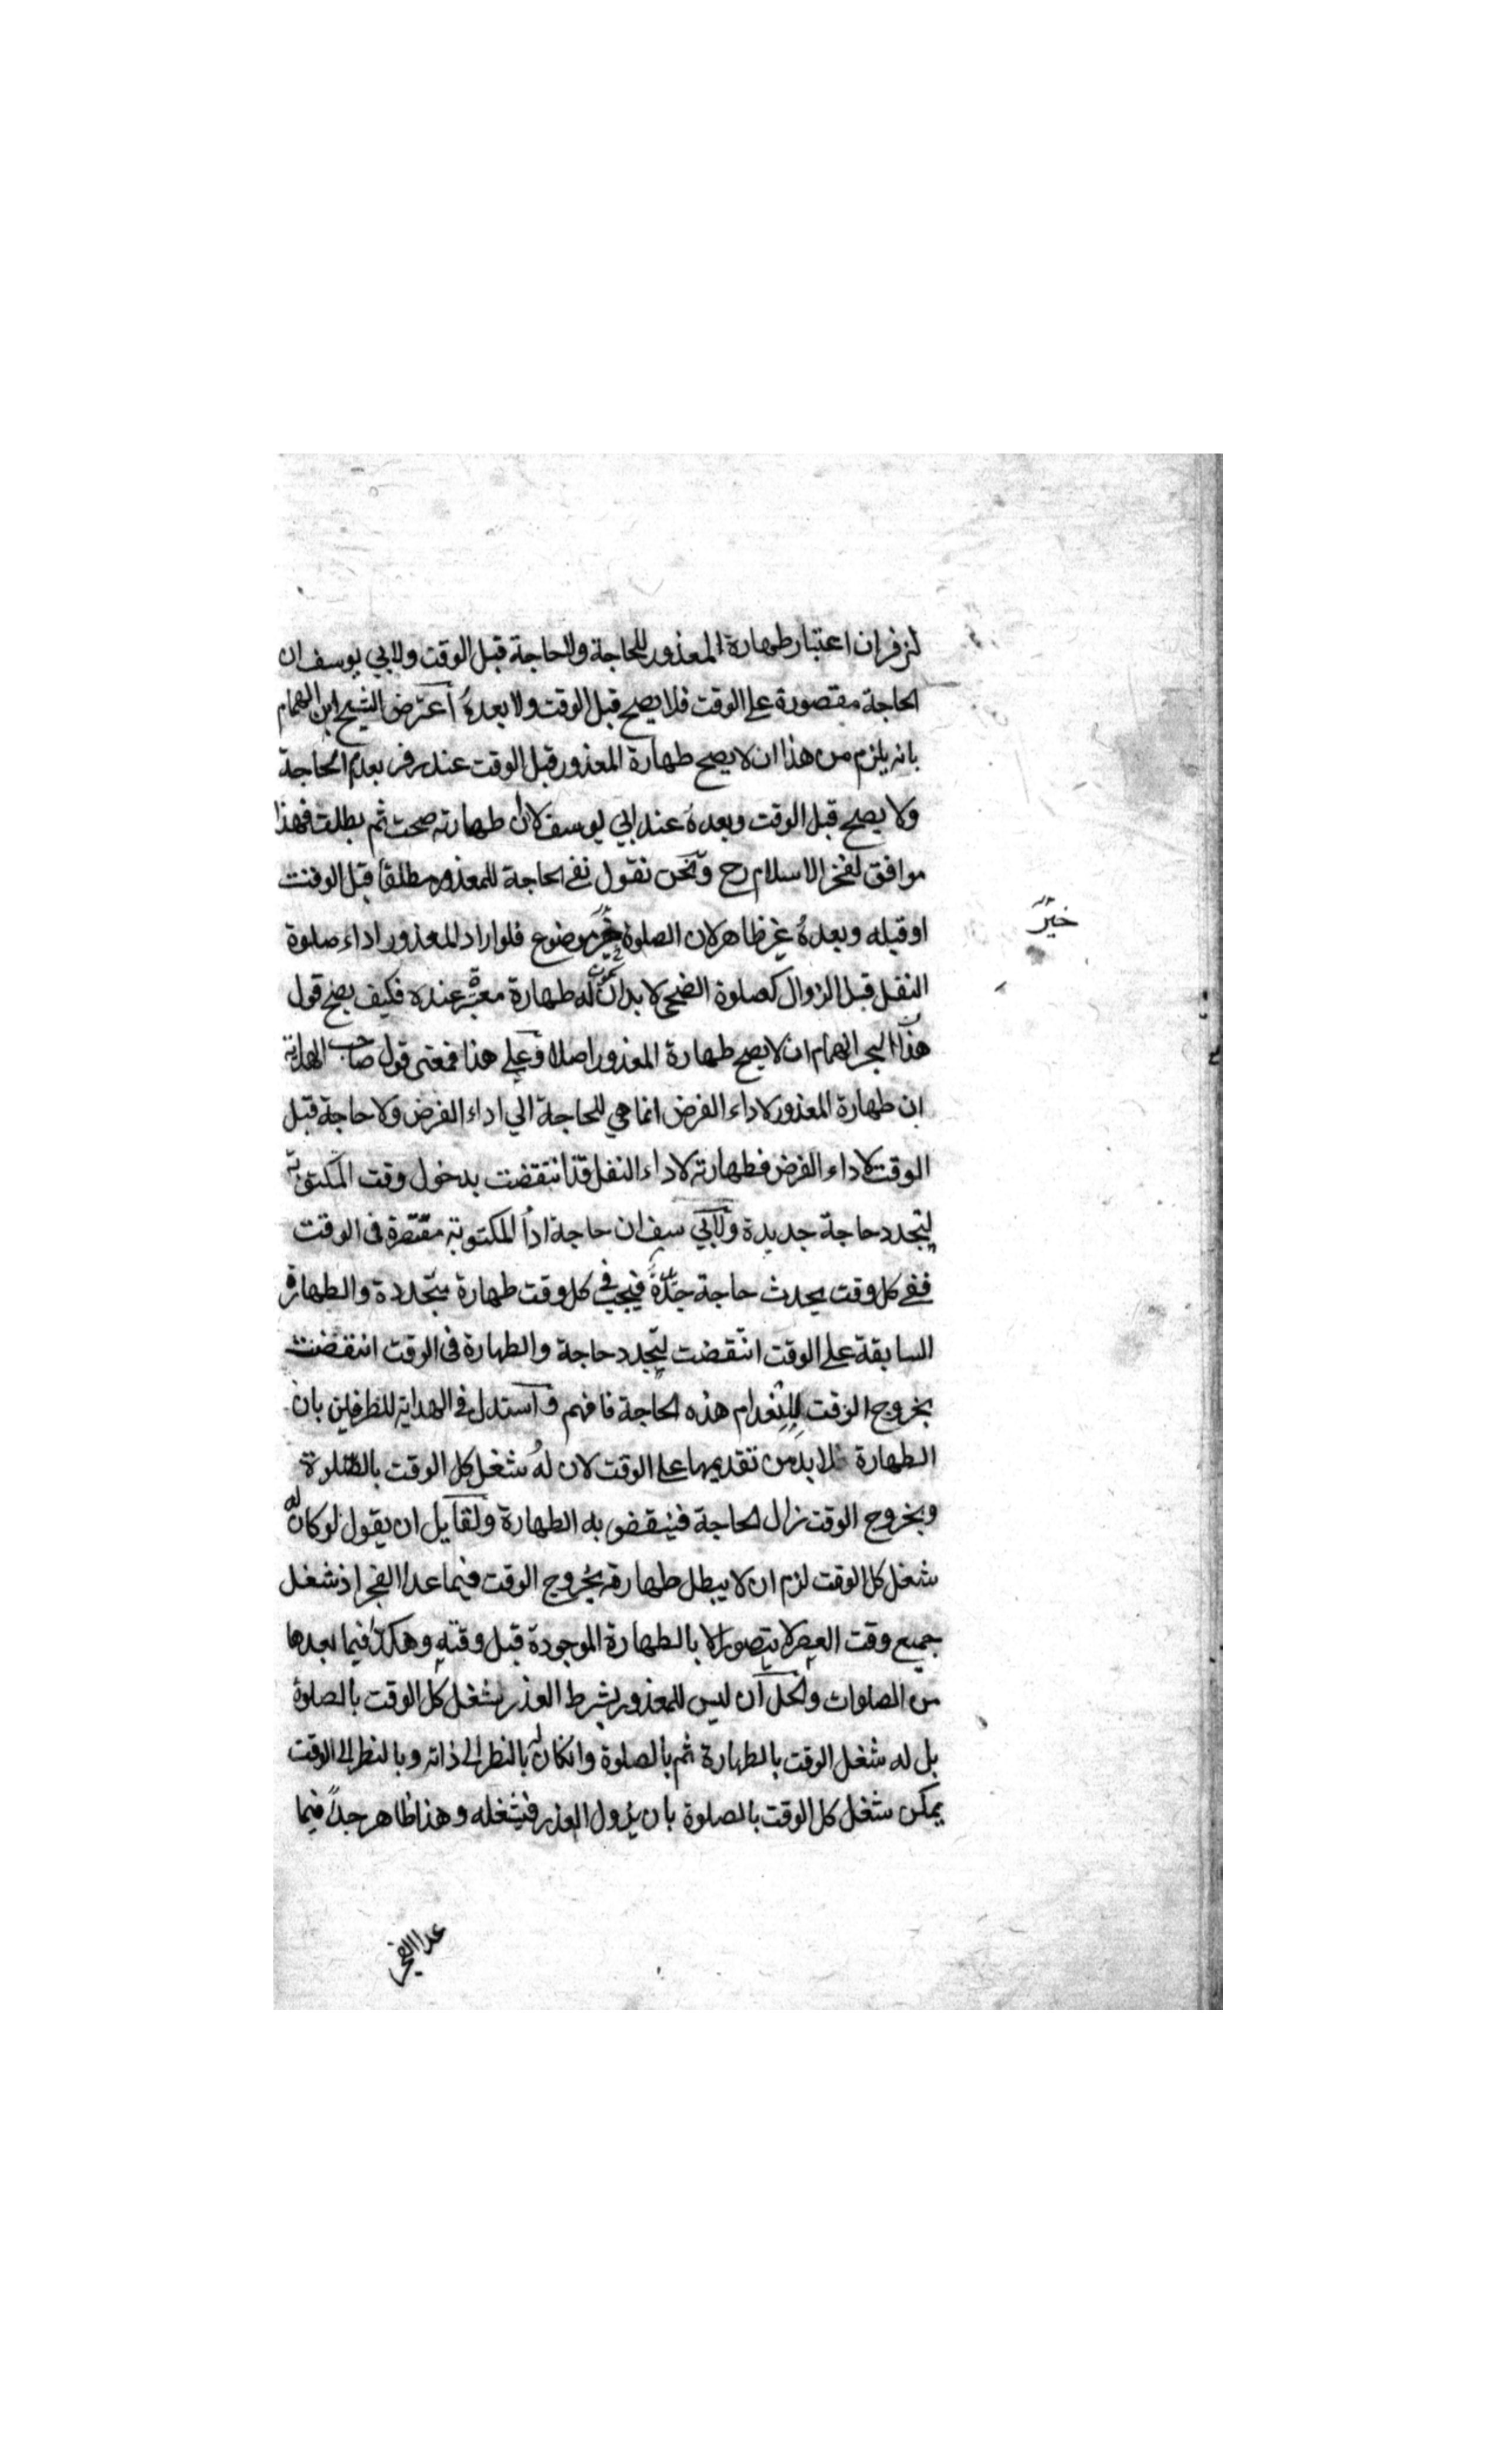 لزفران اعتبار طهارة المعذور للحاجة ولا حاجة قبل الوقت ولابي يوسف ان
الحاجة مقصورة على الوقت فلا يصح قبل الوقت ولا بعده اعترض الشيخ ابن الهمام
بانه يلزم من هذا ان لا يصح طهارة المعذور قبل الوقت عند زفر بعدم الحاجة
ولا يصح قبل الوقت وبعده عند ابي يوسف لان طهارته صحت ثم بطلت فهذا
موافق لفخر الاسلام رح ونحن نقول نفي الحاجة للمعذور مطلقا قبل الوقت
او قبله وبعده غير ظاهر لان الصلوة خير موضوع فلو اراد المعذور اداء صلوة
خير
النفل قبل الزوال كصلوة الضحى لا بد ان يكون له طهارة معتبرة عنده فكيف يصح قول
هذا البحر الهمام ان لا يصح طهارة المعذور اصلا وعلى هذا فمعنى قول صاحب الهداية
ان طهارة المعذور لاداء الفرض انما هي للحاجة الي اداء الفرض ولا حاجة قبل
الوقت لاداء الفرض فطهارته لاداء النفل قد انتقضت بدخول وقت المكتوبة
لتجدد حاجة جديدة ولابي سف ان حاجة اداء المكتوبة مقتصرة في الوقت
ففي كل وقت يحدث حاجة جديدة فيجب في كل وقت طهارة متجددة والطهارة
السابقة على الوقت انتقضت لتجدد حاجة والطهارة في الوقت انتقضت
بخروج الوقت لانعدام هذه الحاجة فافهم واستدل في الهداية للطرفين بان
الطهارة لا بد من تقديمها على الوقت لان له شغل كل الوقت بالصلوة
وبخروج الوقت زال الحاجة فينقض به الطهارة ولقايل ان يقول لو كان له
شغل كل الوقت لزم ان لا يبطل طهارته بخروج الوقت فيما عدا الفجر اذ شغل
جميع وقت العصر لا يتصور الا بالطهارة الموجودة قبل وقته وهكذا فيما بعدها
من الصلوات والحل ان ليس للمعذور بشرط العذر شغل كل الوقت بالصلوة
بل له شغل الوقت بالطهارة ثم بالصلوة وانكان له بالنظر الى ذاته وبالنظر الى الوقت
يمكن شغل كل الوقت بالصلوة بان يزول العذر فيشغله وهذا ظاهر جدا فيما
عدا الفجر